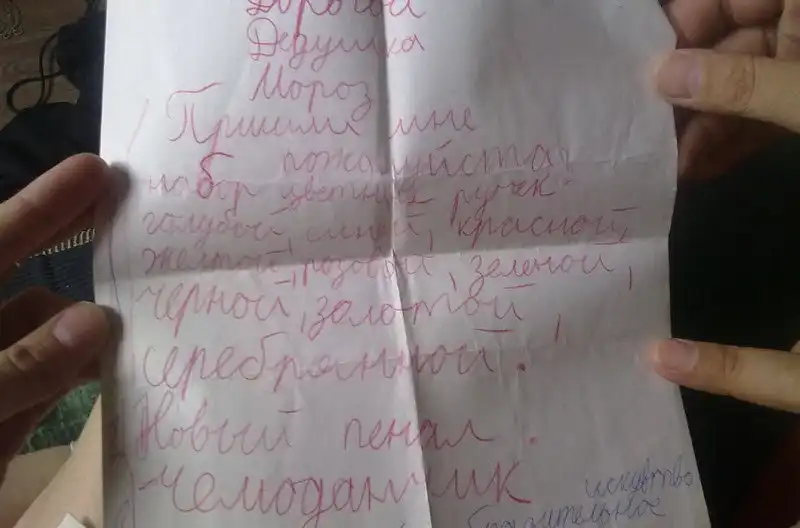 Дорогой
Дедушка
Мороз
Пришли мне
пожалуйста
набор цветных ручек
голубой, синей, красной,
желтой, розовый, зеленой,
черной, золотой,
серебрянной.
Новый пенал.
-чемоданчик
искуство